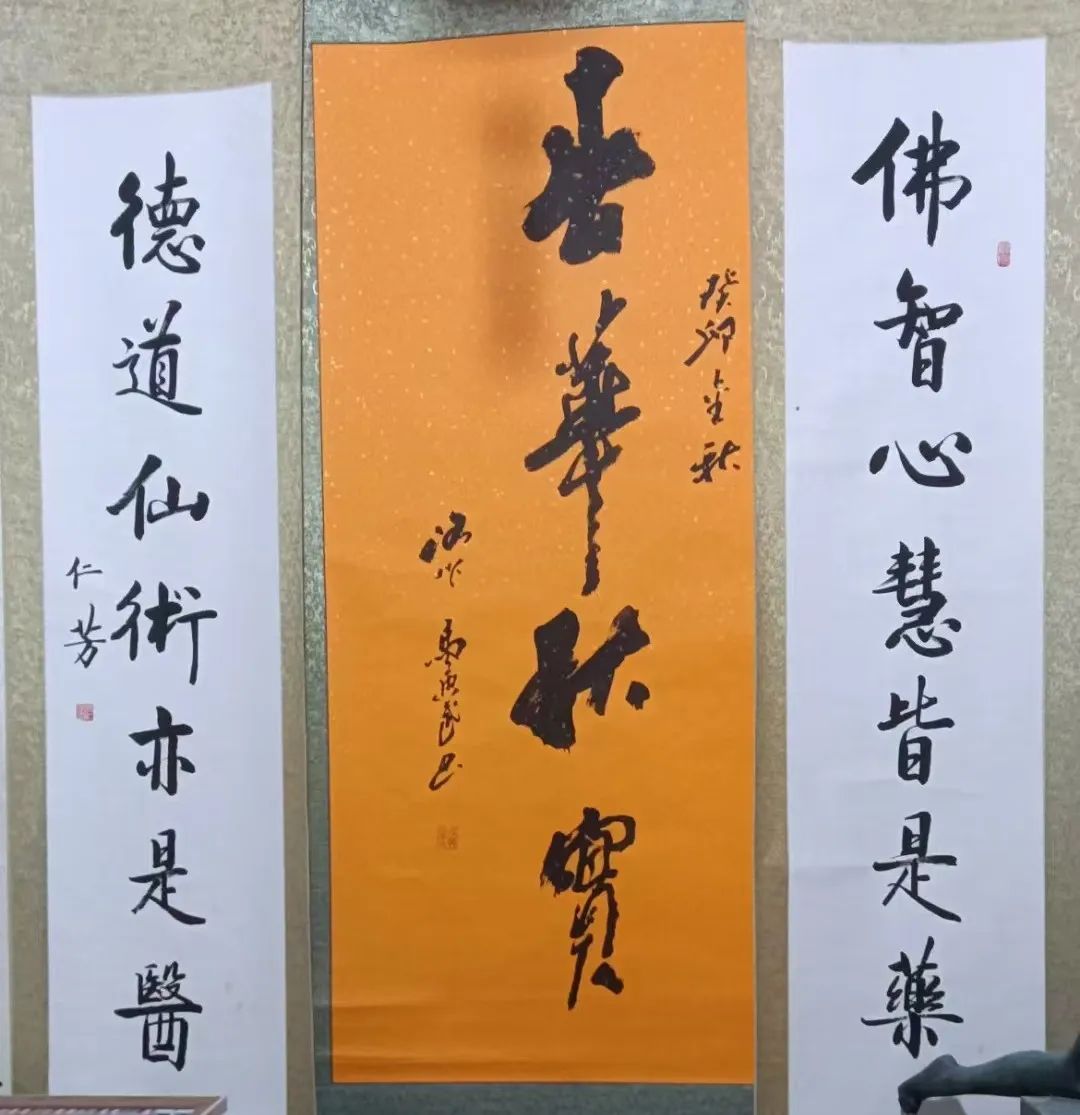 佛智心慧皆是藥
癸卯金秋
春華秋實
馬
德道仙術亦是醫
仁芳